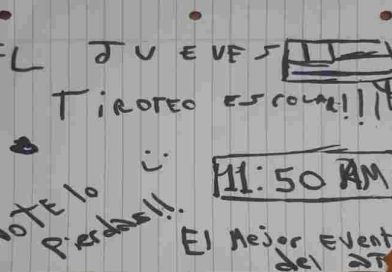 EL JUEVES
TIROTEO ESCOLAR!!!!
11:50 AM
NOTE lo
pierdas!!!
El Mejor Event
del